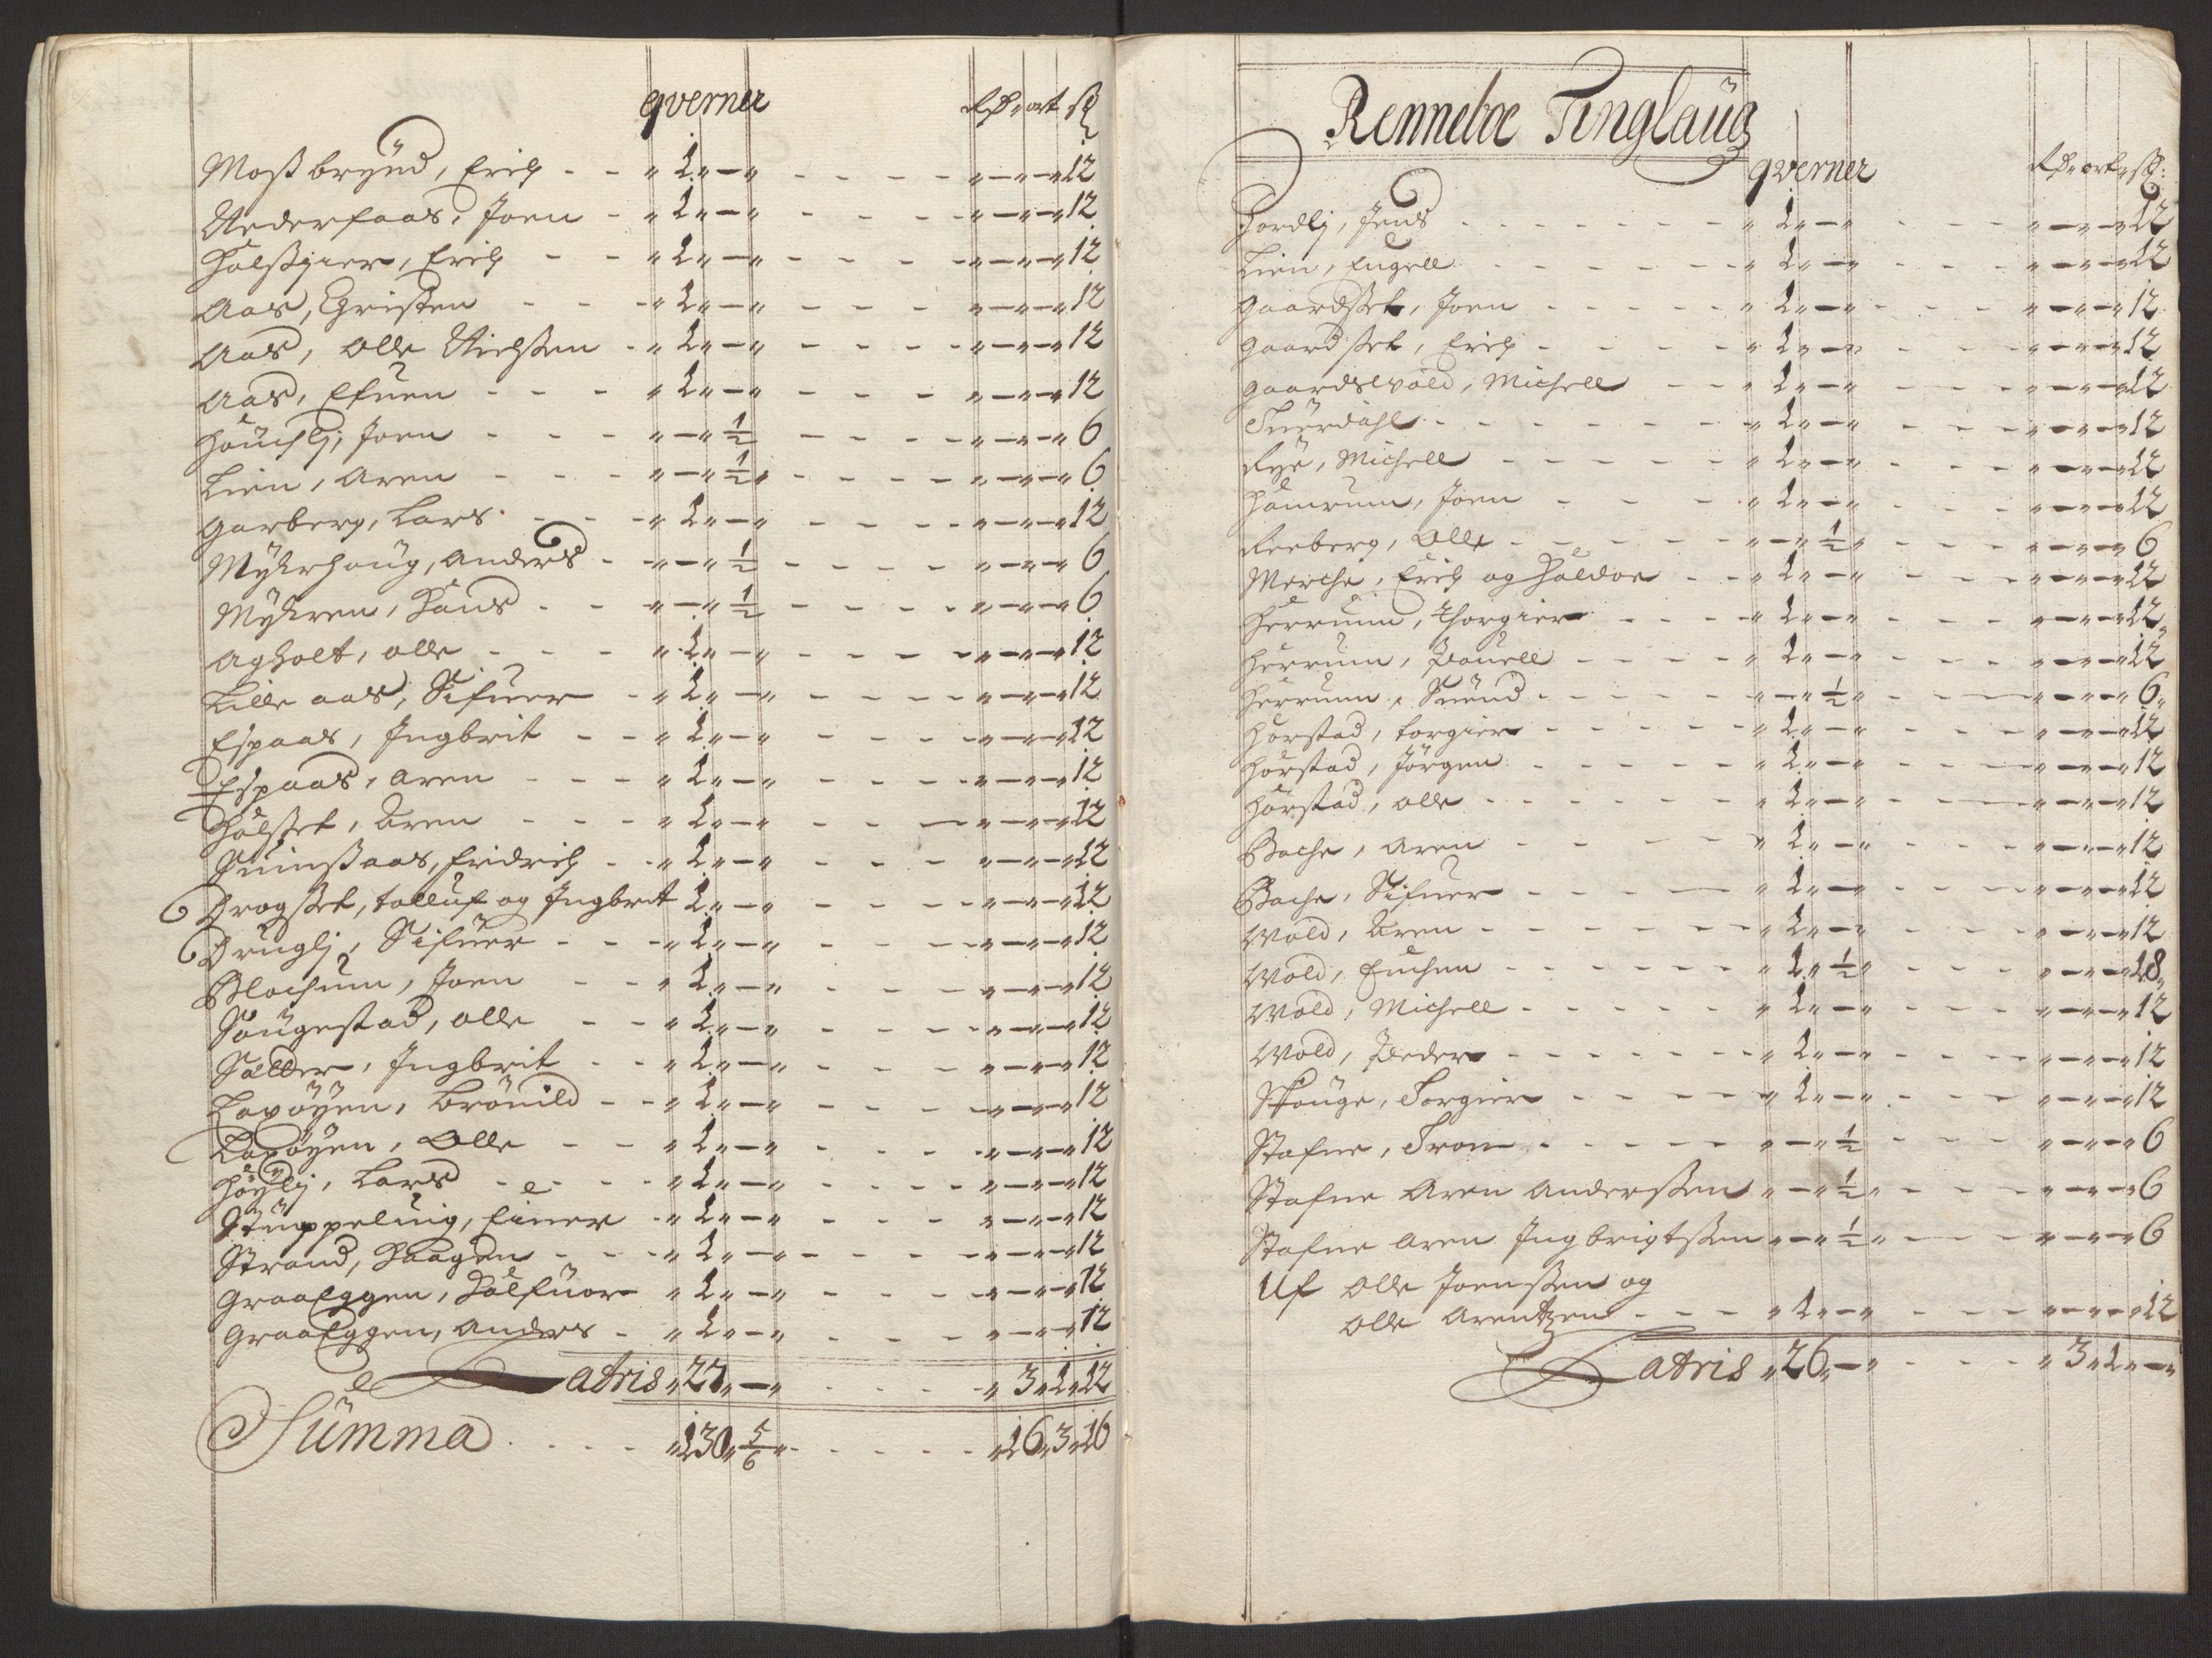 qverner Rdr ort sk
Mossbrynd, Erich - - " 1 " — " - - - - " — " — " 12
Nederfaas, Joen - " 1 " — " - - - " — " — " 12
Holsgier, Erich - - " 1 " — " - - - " — " — " 12
Aas, Christen - - " 1 " — " - - - " — " — " 12
Aas, Olle Nielssen - " 1 " — " - - - - " — " — " 12
Aas, Efuen - - - " 1 " — " - - - " — " — " 12
Houchlj, Joen - - - " — " 1/2 - - - - " — " — " 6
Lien, Aren - - - " — " 1/2 " - - - - " — " — " 6
Garberg, Lars - - - " 1 " — " - - - - " — " — " 12
Mykrhoug, Anders - " — " 1/2 - - - - " — " — " 6
Mykren, Hans - - " — " 1/2 - - - - " — " — " 6
Agholt, Olle - - - " 1 " — " - - - - " — " — " 12
Lille aas, Sifuer - " 1 " — " - - - - " — " — " 12
Espaas, Ingbrit - - " 1 " — " - - - - " — " — " 12
Espaas, Aren - - - " 1 " — " - - - - " — " — " 12
Holsset, Aren - - - " 1 " — " - - — " — " — " 12
Suinsaas, Fridrich - - " 1 " — " - - - " — " — " 12
Drogsset, tolluf og Ingbret 1 " — " - - - - " — " — " 12
Druglj, Sifuer - - - " 1 " — " - - - " — " — " 12
Blochum, Joen - - " 1 " — " - - - " — " — " 12
Sougestad, Olle - - " 1 " — " - - - - " — " — " 12
Solder, Ingbrit - - " 1 " — " - - - " — " — " 12
Laxöyen, Brönild - - " 1 " — " - - - " — " — " 12
Laxöyen, Olle - - " 1 " — " - - - " — " — " 12
Höylj, Lars - - - - " 1 " — " - - - - " — " — " 12
Stuppeluig, Einer - " 1 " — " - - - " — " — " 12
Strand, Haagen - - - " 1 " — " - - - - " — " — " 12
Graaeggen, Halfuor " 1 " — " - - - " — " — " 12
Graaeggen, Anders - " 1 " — " - - - " — " — " 12
Latris " 27 " — " - - - - " 3 " 1 " 12
Summa - - - - " 130 " 5/6 " - - - - - " 16 " 3 " 16
Renneboe Tinglaug
qverner Rdr ort sk:
Hordlj, Jens - - - - - - - " 1 " — " - - - " — " — " 12
Lien, Engell - - - - - " 1 " — " - - - " — " — " 12
Gaardsset, Joen - - - - - " 1 " — " - - - " — " — " 12
Gaardsset, Erich - - - - " 1 " — " - - - " — " — " 12
Gaardswold, Michell - - " 1 " — " - - - " — " — " 12
Snerdahl - - - - - - - " 1 " — " - - - " — " — " 12
Rye, Michell - - - - - " 1 " — " - - - " — " — " 12
Hamrum, Joen - - - - " 1 " — " - - - " — " — " 12
Reeberg, Olle - - - - - " — " 1/2 " - - - " — " — " 6
Merche, Erich og Haldor - - " 1 " — " - - - " — " — " 12
Herrum, Thorgier - - - - " 1 " — " - - - " — " — " 12
Herrum, Pouell - - - - " 1 " — " - - - " — " — " 12
Herrum, Suend - - - - - " — " 1/2 " - - - " — " — " 6
Horstad, torgier - - - - - " 1 " — " - - - " — " — " 12
Horstad, Jörgen - - - - - " 1 " — " - - - " — " — " 12
Horstad, Olle - - - - - - " 1 " — " - - - " — " — " 12
Bache, Aren - - - - - " 1 " — " - - - " — " — " 12
Bache, Sifuer - - - - - " 1 " — " - - - " — " — " 12
Wold, Aren - - - - - - " 1 " — " - - - " — " — " 12
Wold, - - - - - - " 1 " 1/2 " - - - " — " — " 18
Wold, Michell - - - - - " 1 " — " - - - " — " — " 12
Wold, Peder - - - - - - " 1 " — " - - - " — " — " 12
Skouge, Torgier - - - - " 1 " — " - - - " — " — " 12
Stafne, Tron - - - - - " — " 1/2 - - - " — " — " 6
Stafne Aren Anderssen " — " 1/2 " - - - " — " — " 6
Stafne Aren Ingbrigtssen " — " 1/2 " - - - " — " — " 6
Uf Olle Joenssen og
Olle Arentzen - - - " 1 " — " - - - " — " — " 12
Latris " 26 " — " - - - - " 3 " 1 " — "